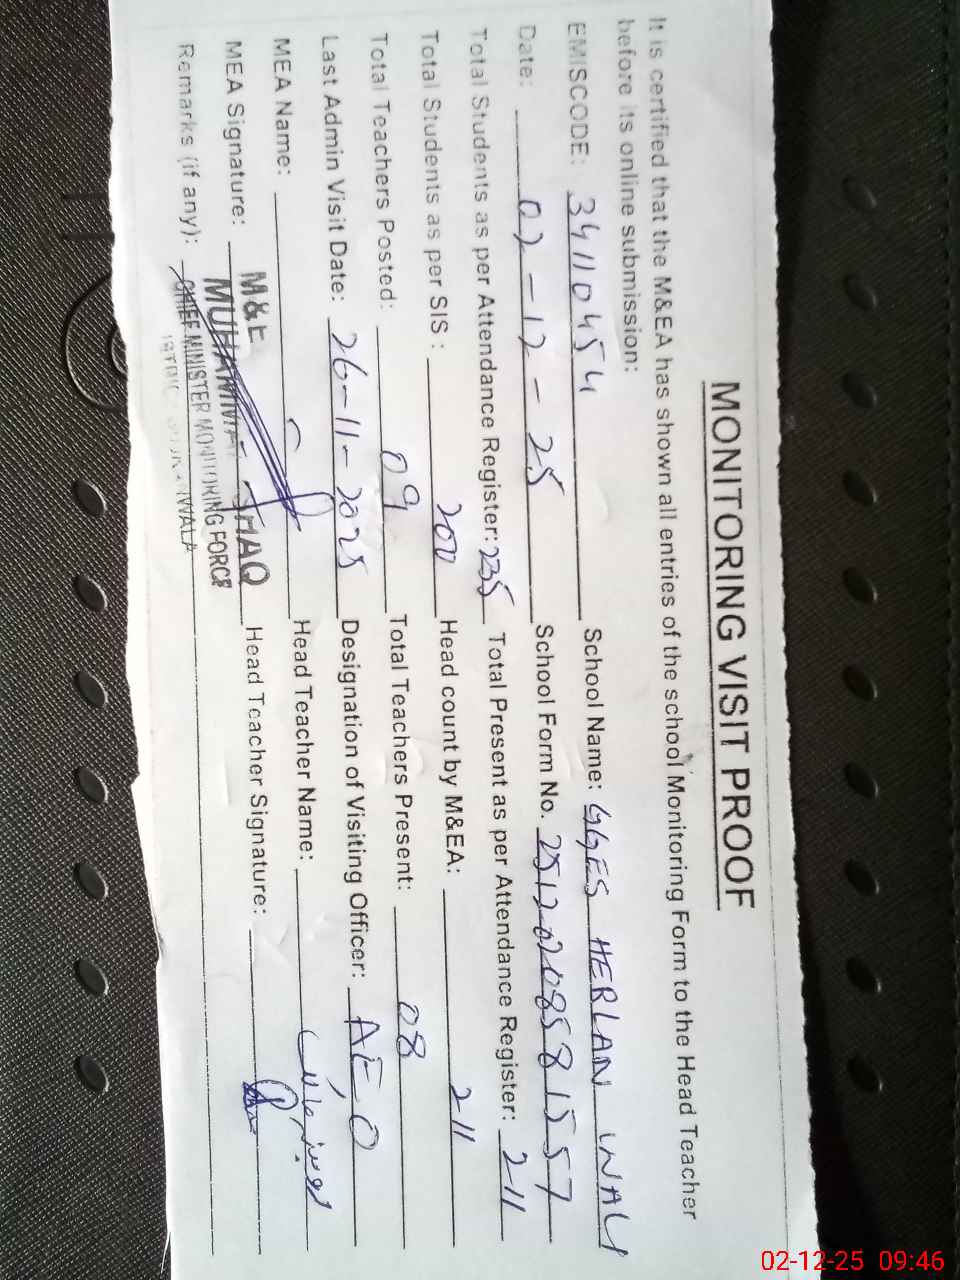 MONITORING VISIT PROOF
It is certified that the M&EA has shown all entries of the school Monitoring Form to the Head Teacher
before its online submission:
EMISCODE: 34110454 School Name: GGES HERLAN WALI
Date: 02-12-25 School Form No. 2512020858 1557
Total Students as per Attendance Register: 235 Total Present as per Attendance Register: 211
Total Students as per SIS: Head count by M&EA: 211
Total Teachers Posted: 09 Total Teachers Present: 08
Last Admin Visit Date: 26-11-2025 Designation of Visiting Officer: AEO
MEA Name: Head Teacher Name:
MEA Signature: Head Teacher Signature:
Remarks (if any):
M&E
CHIEF MINISTER MONITORING FORCE
02-12-25 09:46